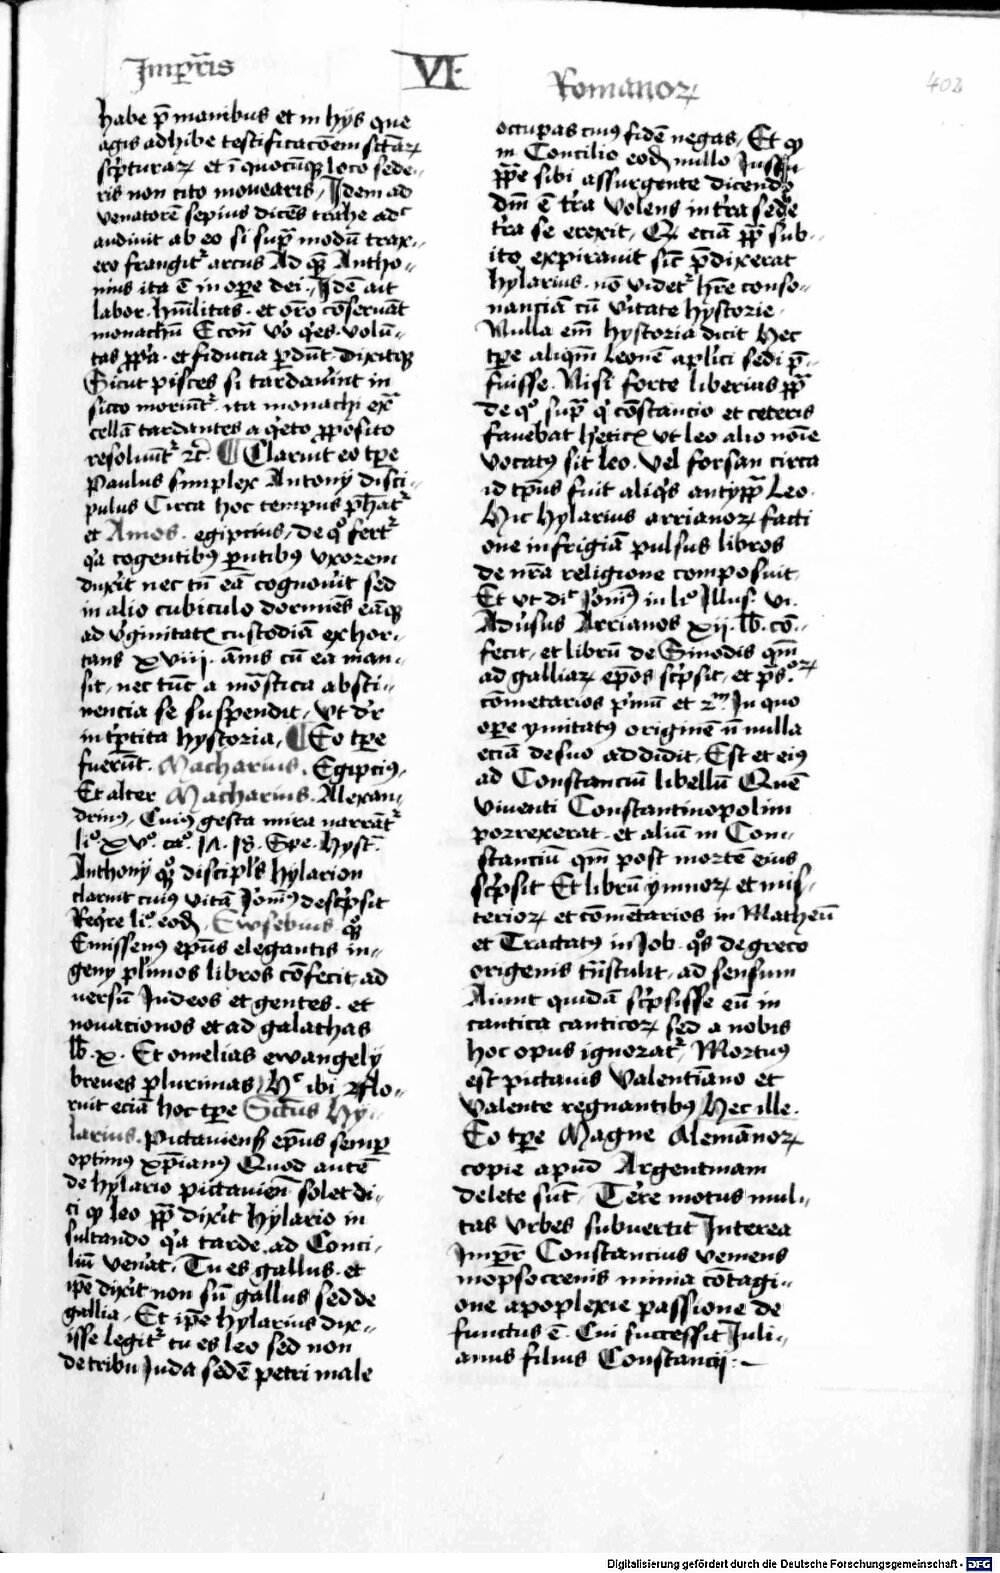 Imperatoris VI Romanoꝝ 402
habe p̄ manibus et in hijs que
agis adhibe testificac̄oem sctāꝝ
sc̓pturaꝝ et ī quocūqꝫ loco sede-
ris non cito movearis, Idem ad
venatorē sepius dicēs trahe ad
audivit ab eo si sup̄ modū trax-
ero frangit᷑ arcus Ad qꝫ Antho-
nius ita ē in oꝑe dei, Idē ait
labor. hūilitas. et or̄o cōservāt
monachū E con̄ v̓o q̓es. volū-
tas ꝓp̓a. et fiducia ꝑdūt. dixitqꝫ
Sicut pisces si tardav̓int in
sicco moriūt᷑ ita monachi ex̄
cellā tardantes a q̓eto ꝓposito
resolvūt᷑ ⁊c̄ ¶ Claruit eo tꝑe
Paulus simplex Antonij disci-
pulus Circa hoc tempus ph̄at᷑
et Amos. egipcius, de qͦ fert᷑
q̓a cogentibꝰ ꝑentibꝰ uxorem
duxit nec tn̄ eā cognov̓it sed
in alio cubiculo dormiēs eāqꝫ
ad v̓ginitatꝭ custodiā exhor-
tans xviij. annis cū ea man-
sit, nec tūc a mōstica absti-
nencia se suspendit, Ut d̓r
in tꝑtita hystoria, ¶ Eo tꝑe
fuerūt. Macharius. Egipciꝰ,
Et alter Macharius. Alexan-
drinꝰ, Cuiꝰ gesta mira narrāt᷑
liͦ. xvͦ. caͦ. 17. 18. Spe. Hyst.
Anthonij qͦqꝫ discipl̓s Hylarion
claruit cuiꝰ vitā Jeroīmꝰ desc̓psit
Req̓re liͦ. eod, Ewsebius qͦqꝫ
Emissenꝰ ep̄us elegantis in-
genij pl̓imos libros cōfecit, ad
versū Judeos et gentes. et
novacionos et ad galathas
lib̄. x. Et omelias ewangelij
breves plurimas, Hͨ ibi ⁊ flo-
ruit eciā hoc tꝑe Sctūs Hy-
larius. Pictaviens̄ ep̄us semꝑ
optimꝰ xp̄ianꝰ Quod autē
de Hylario pictavien̄ solet di-
ci qꝫ leo pp̄ dixit Hylario in
sultando q̓a tarde. ad Conci-
liū ven̓at. Tu es gallus. et
ip̄e dixit non sū gallus sed de
gallia. Et ip̄e Hylarius dix-
isse legit᷑ tu es leo sed non
de tribu Juda sedē petri male
occupas cuiꝰ fidē negas, Et qꝫ
in Concilio eod nullo Jussu
pp̄e sibi assurgente dicendo
Dn̄i ē t̓ra Volens in t̓ra sede
t̓ra se erexit, Qꝫ eciā pp̄ sub-
ito expiravit sic̄ p̄dixerat
Hylarius. nō videt᷑ h̄re conso-
nanciā cū v̓itate hystorie.
Nulla em̄ hystoria dicit Hec
tꝑe aliqm̄ Leonē apl̓ici sedi p̄-
fuisse. Nisi forte liberius pp̄
de qͦ sup̄ q̓ cōstancio et ceteris
favebat h̓eticꝭ ut leo alio nōie
vocatꝰ sit leo. Vel forsan circa
id tp̄us fuit aliq̓s antypp̄ Leo.
Hic Hylarius arrianoꝝ facti
one in frigiā pulsus libros
de nr̄a religione composuit,
Et ut dic̄ Jeroīmꝰ in liͦ Illus. vi.
Adv̓sus Arrianos xij. lib̄. cō-
fecit, et librū de Sinodis qm̄
ad galliaꝝ ep̄os sc̓psit, et ps̄.oꝝ
cōmetarios p̓mū et 2m Ju quo
oꝑe ymitatꝰ originē n̄ nulla
eciā de suo addidit. Est et eiꝰ
ad Constanciū libellū Quē
viventi Constantinopolim
porrexerat. et aliū in Con-
stanciū qm̄ post mortē eius
sc̓psit Et librū ymnoꝝ et mis-
terioꝝ et cōmētarios in Matheū
et Tractatꝰ in Job. qͦs de greco
origenis trāstulit, ad sensum
Aiunt quidā sc̓psisse eū in
cantica canticoꝝ sed a nobis
hoc opus ignorat᷑, Mortuꝰ
est pictavis Valentiāno et
Valente regnantibꝰ Hec ille.
Eo tꝑe Magne Alemānoꝝ
copie apud Argentinam
delete sūt. T̓re motus mul-
tas urbes subvertit Interea
Imꝑr̄ Constancius vemens
mopsocrenis nimia cōtagi-
one apoplexie passione de
functus ē. Cui successit Juli-
anus filius Constancij.
Digitalisierung gefördert durch die Deutsche Forschungsgemeinschaft - DFG